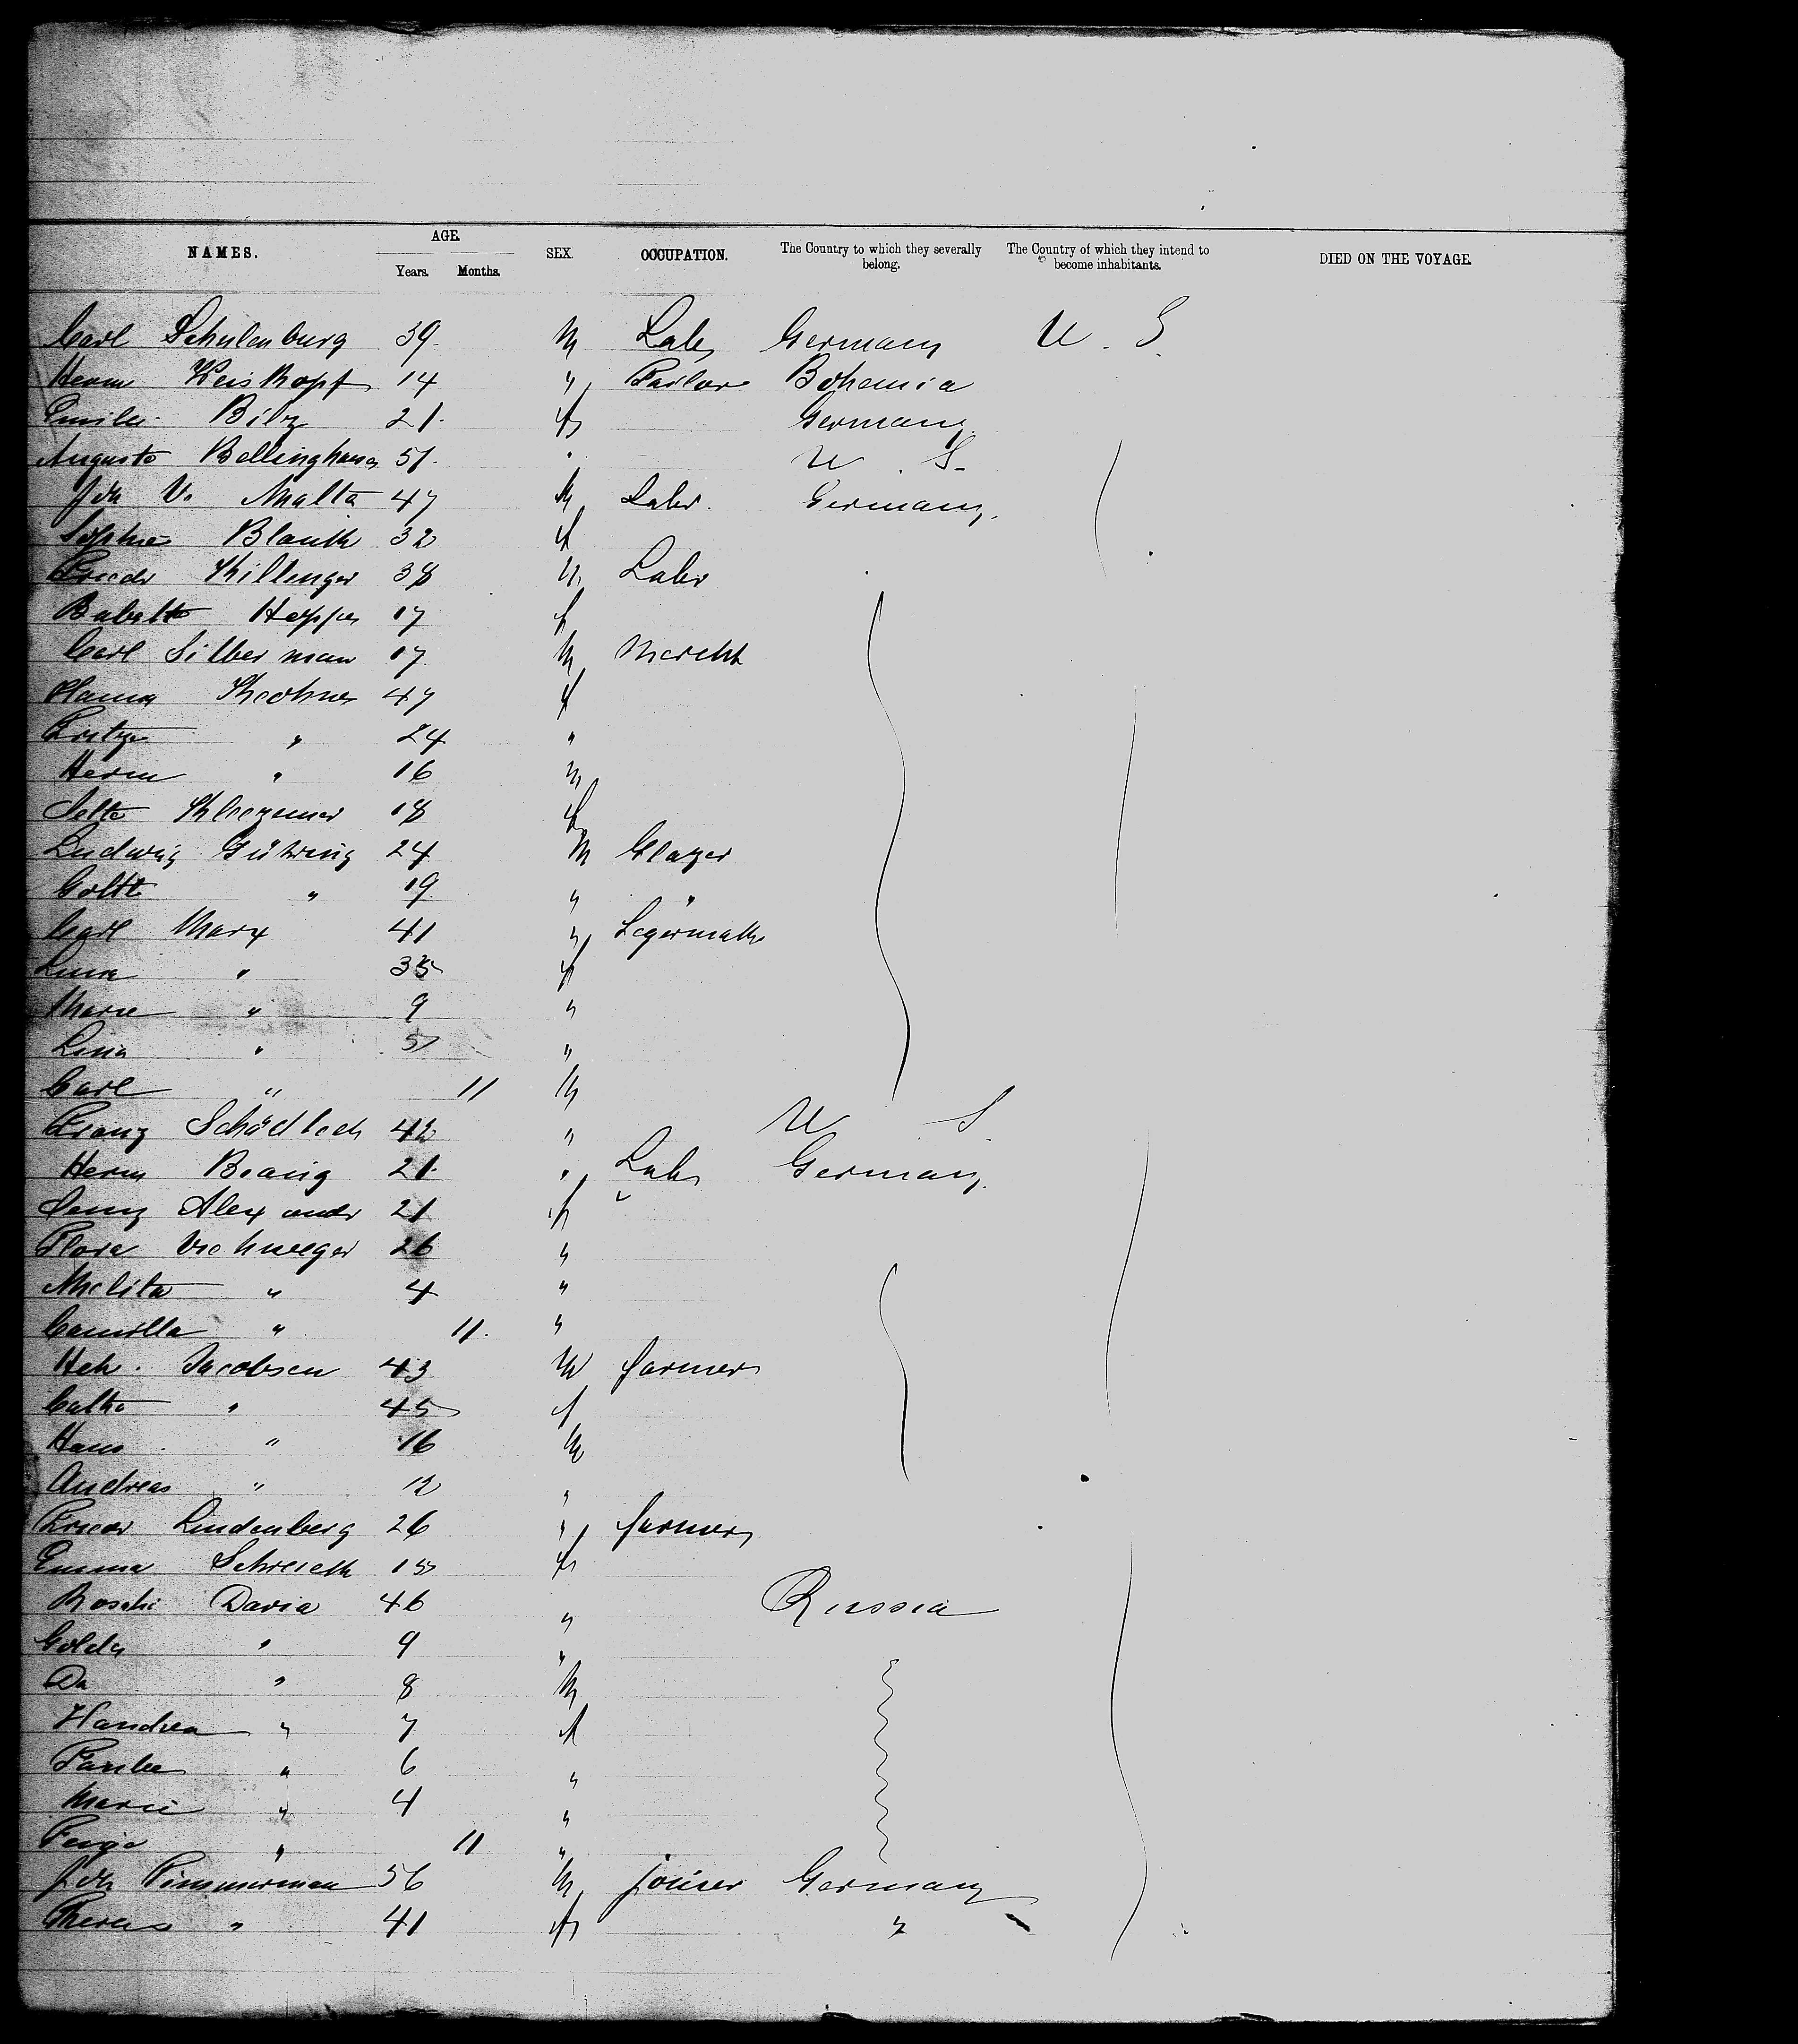 NAMES. AGE. SEX. OCCUPATION. The Country to which they severally belong. The Country of which they intend to become inhabitants. DIED ON THE VOYAGE.
Years. Months.
Carl Schulenburg 39. M Labr Germany U. S.
Herm Keiskopf 14 " Tailor Bohemia
Emilie Bilz 21. f Germany
Auguste Bellinghausen 51. " U. S.
Joh V. Malta 47 M Labr. Germany.
Sophie Blauth 32 f
Friedr Killinger 38 M Labr
Babette Hoppe 17 f
Carl Silberman 17. M Marcht
Hanna 47 f
" 24 "
Herm " 16 M
Kleezumer 18 f
Ludwig Gühring 24 M Glazer
Gottl " 19. " "
Carl Marx 41 "
Lina " 35 f
Marie " 9 "
Lina " 5 "
Carl " 11 M
Franz Schädlich 42 " U S.
Herm Braig 21. " Labr Germany.
Jenny Alexander 21 f
Flora Viehweger 26 "
Melita " 4 "
Camilla " 11. "
Hch. Jacobsen 43 M farmer
Catha " 45 f
Hans " 16 M
Andreas " 12 "
Friedr Lindenberg 26 " farmer
Emma 15 f
Davia 46 " Russia
Golda " 9 "
" 8 M
" 7 f
Taube " 6 "
Marie " 4 "
Feige " 11 "
Joh Zimmerman 56 M joiner Germany
Theres " 41 f "